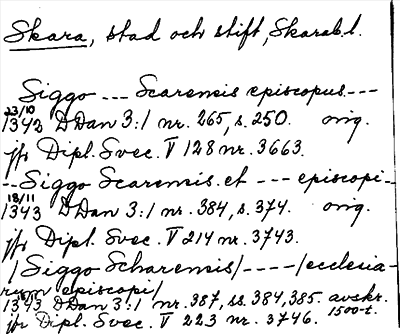 Skara, stad och stift, Skarab.l.
Siggo --- Scarensis episcopus ---
23/10
1343 DDan 3:1 nr. 265, s. 250. orig.
jfr Dipl. Svec. V 128 nr. 3663.
-- Siggo Scarensis et --- episcopi --
18/11
1343 DDan 3:1 nr. 384, s. 374. orig.
jfr Dipl. Svec. V 214 nr. 3743.
/Siggo Scharensis/ ---- /ecclesia-
rum episcopi/
1343 DDan 3:1 nr. 387, ss. 384, 385. avskr.
1500-t.
jfr Dipl. Svec. V 223 nr. 3746.